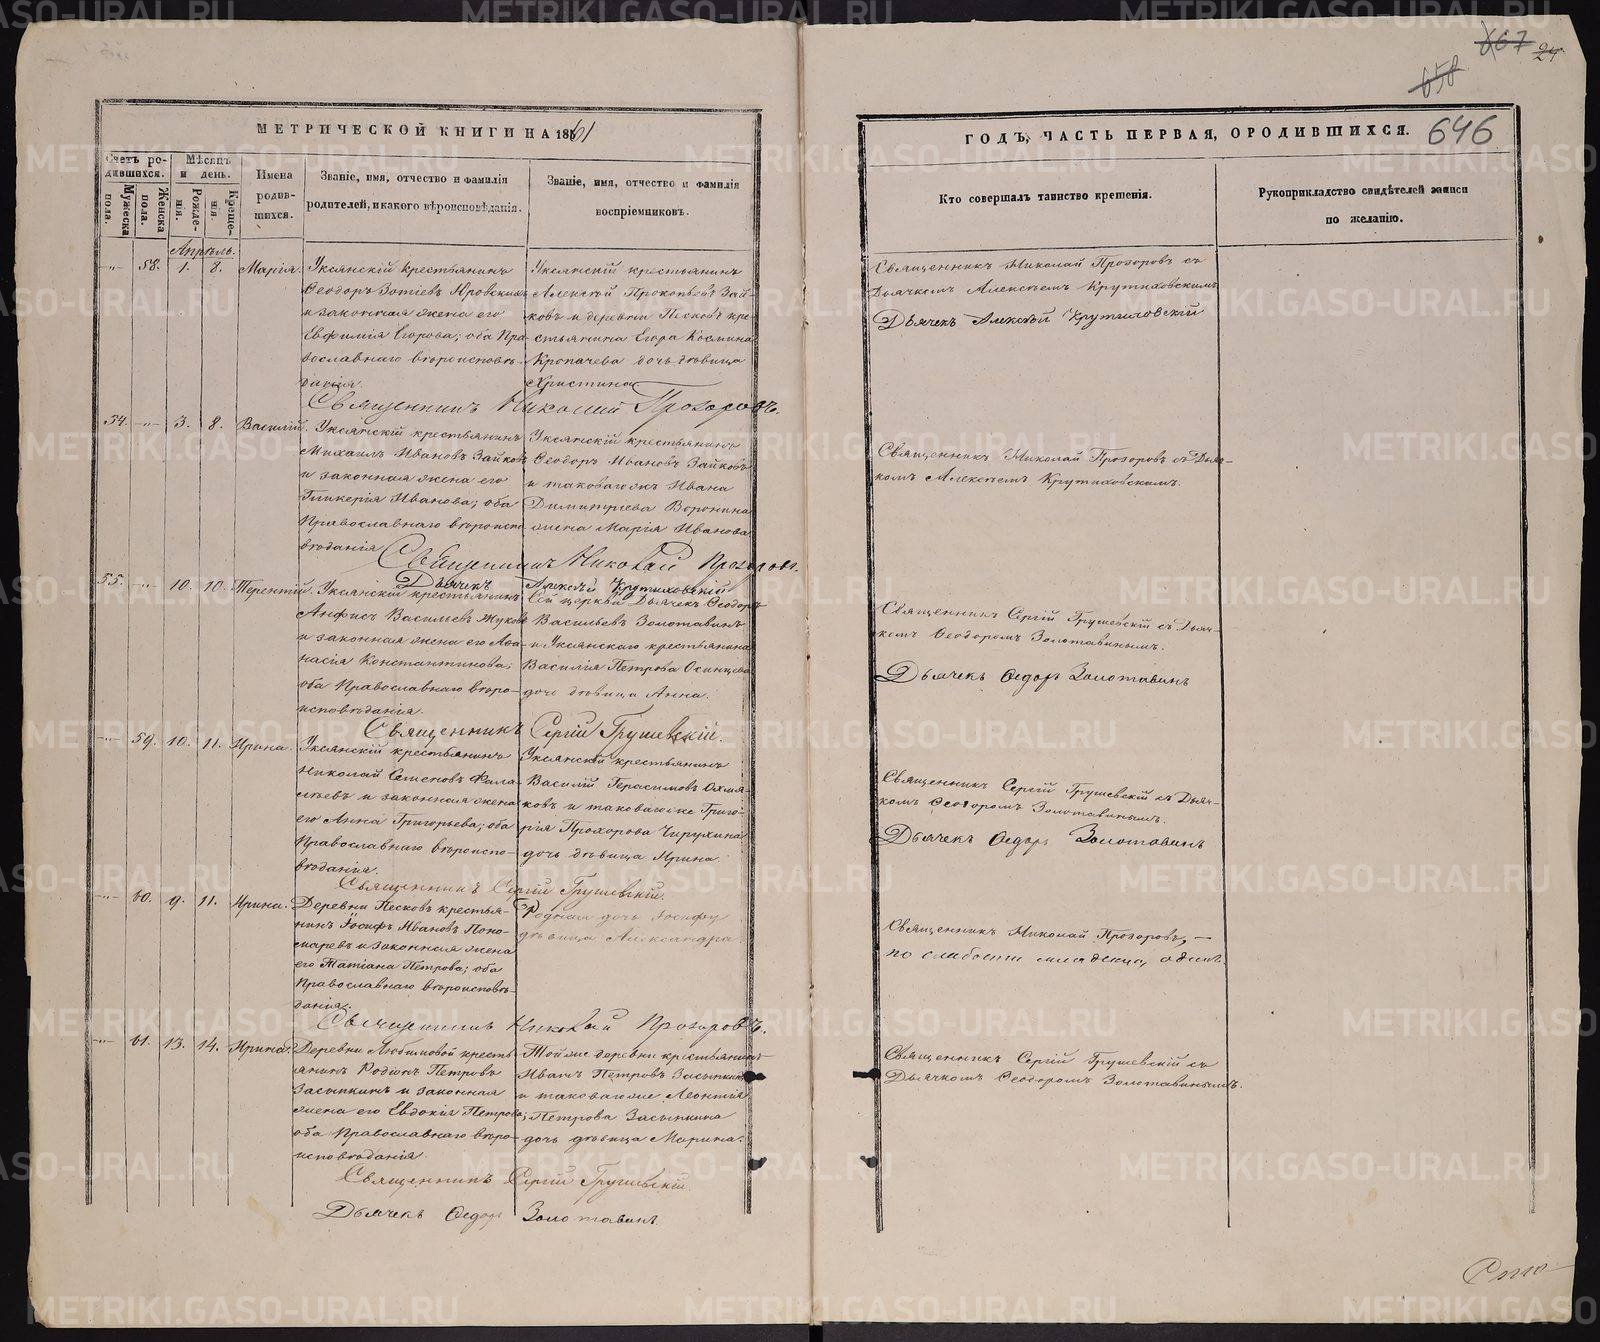 МЕТРИЧЕСКОЙ КНИГИ НА 1861
Счетъ ро-
дившихся.
Мѣсяцъ
и день.
Имена
родив-
шихся.
Званіе, имя, отчество и фамилія
родителей, и какого вѣроисповѣданія.
Званіе, имя, отчество и фамилія
воспріемниковъ.
Мужеска
пола.
Женска
пола.
Рожде-
нія.
Креще-
нія.
Апрѣль.
-"- 58. 1. 8. Марія.
Уксянскій крестьянинъ
Ѳеодоръ Зотіевъ Юровскихъ
и законная жена его
Евфимія Егорова; оба Пра-
вославнаго вѣроисповѣ-
данія.
Уксянскій крестьянинъ
Алексѣй Прокопьевъ Зай-
ковъ и деревни Песковъ кре-
стьянина Егора Космина
Кропачева дочь дѣвица
Христина
Священникъ Николай Прозоровъ.
54. -"- 3. 8. Василій.
Уксянскій крестьянинъ
Михаилъ Ивановъ Зайковъ
и законная жена его
Гликерія Иванова; оба
Православнаго вѣроиспо-
вѣданія
Уксянскій крестьянинъ
Ѳеодоръ Ивановъ Зайковъ
и таковагожъ Ивана
Димитріева Воронина
жена Марія Иванова
Священникъ Николай Прозоровъ.
Дьячекъ Алексѣй Крутиховскій
55. -"- 10. 10. Терентій.
Уксянскій крестьянинъ
Анфисъ Васильевъ Жуковъ
и законная жена его Аѳа-
насія Константинова;
оба Православнаго вѣро-
исповѣданія.
Сей церкви Дьячекъ Ѳеодоръ
Васильевъ Золотавинъ
и Уксянскаго крестьянина
Василія Петрова Осинцева
дочь дѣвица Анна.
Священникъ Сергій Грушевскій.
-"- 59. 10. 11. Ирина.
Уксянскій крестьянинъ
Николай Семеновъ Фала-
лѣевъ и законная жена
его Анна Григорьева; оба
Православнаго вѣроиспо-
вѣданія.
Уксянскій крестьянинъ
Василій Герасимовъ Охмя-
ковъ и таковагоже Григо-
рія Прохорова Чирухина
дочь дѣвица Ирина.
Священникъ Сергій Грушевскій.
-"- 60. 9. 11. Ирина.
Деревни Песковъ крестья-
нинъ Іосифъ Ивановъ Поно-
маревъ и законная жена
его Татіана Петрова; оба
Православнаго вѣроисповѣ-
данія.
Родная дочь Іосифу
дѣвица Александра.
Священникъ Николай Прозоровъ.
-"- 61. 13. 14. Ирина.
Деревни Любимовой кресть-
янинъ Родіонъ Петровъ
Засыпкинъ и законная
жена его Евдокія Петрова;
оба Православнаго вѣро-
исповѣданія.
Тойже деревни крестьянинъ
Иванъ Петровъ Засыпкинъ
и таковагоже Леонтія
Петрова Засыпкина
дочь дѣвица Марина.
Священникъ Сергій Грушевскій.
Дьячекъ Ѳедоръ Золотавинъ
667 24
658
646
ГОДЪ, ЧАСТЬ ПЕРВАЯ, О РОДИВШИХСЯ.
Кто совершалъ таинство крещенія.
Рукоприкладство свидѣтелей записи
по желанію.
Священникъ Николай Прозоровъ съ
Дьячкомъ Алексѣемъ Крутиховскимъ
Дьячекъ Алексѣй Крутиховскій
Священникъ Николай Прозоровъ съ Дьяч-
комъ Алексѣемъ Крутиховскимъ.
Священникъ Сергій Грушевскій съ Дьяч-
комъ Ѳеодоромъ Золотавинымъ.
Дьячекъ Ѳедоръ Золотавинъ
Священникъ Сергій Грушевскій съ Дьяч-
комъ Ѳеодоромъ Золотавинымъ.
Дьячекъ Ѳедоръ Золотавинъ
Священникъ Николай Прозоровъ, —
по слабости младенца, одинъ.
Священникъ Сергій Грушевскій съ
Дьячкомъ Ѳеодоромъ Золотавинымъ.
METRIKI.GASO-URAL.RU